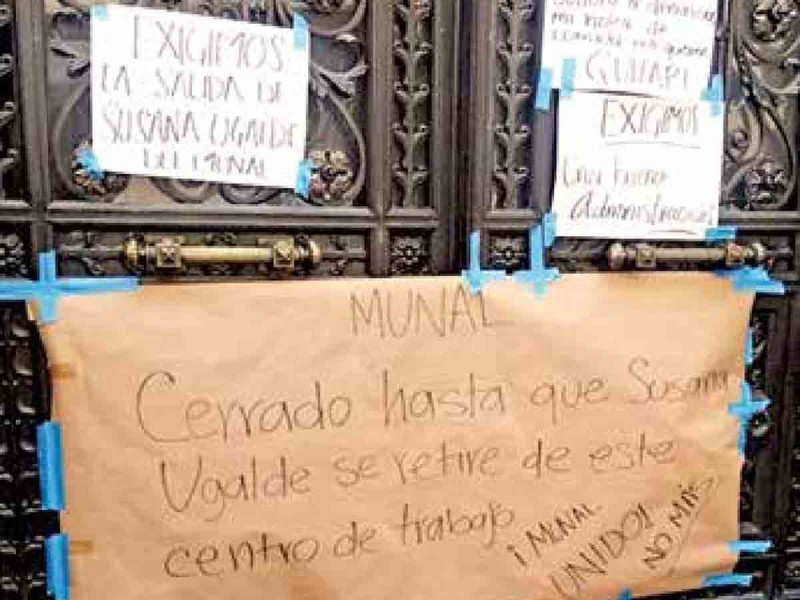 EXIGIMOS
LA SALIDA DE
SUSANA UGALDE
DEL MUNAL
mi hora de
EXIGIMOS
Una buena
Administración
MUNAL
Cerrado hasta que Susana
Ugalde se retire de este
centro de trabajo
¡MUNAL
UNIDO!
NO MÁS